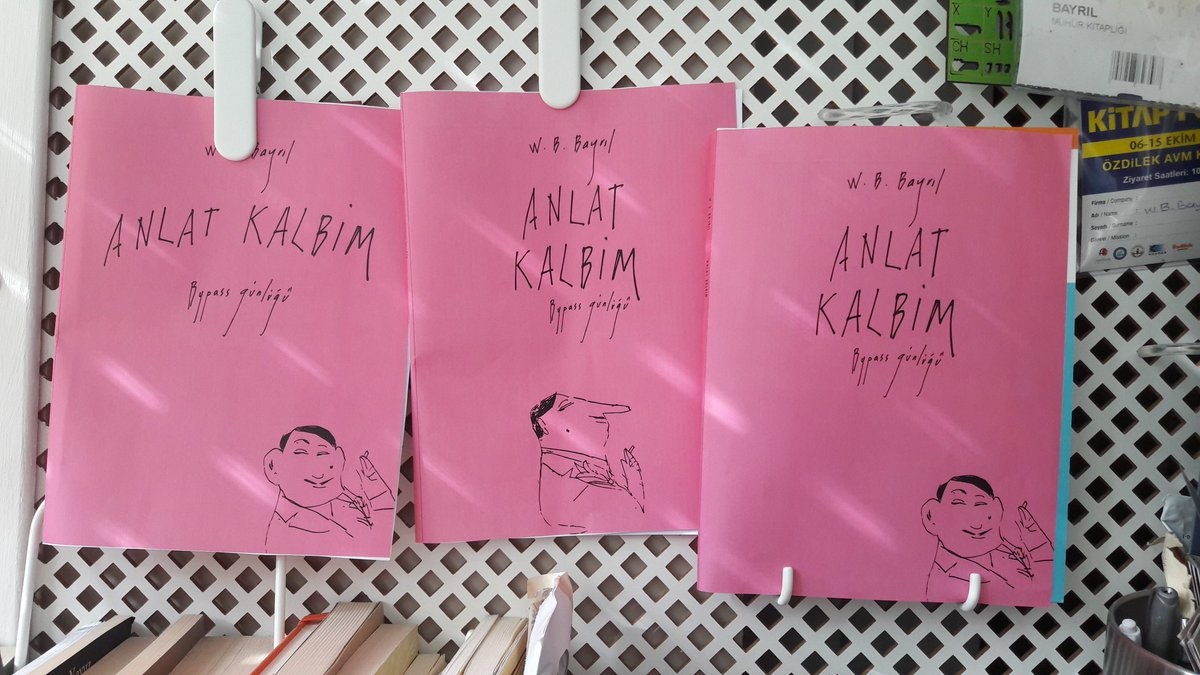 W. B. Bayrıl
ANLAT KALBİM
Bypass günlüğü
W. B. Bayrıl
ANLAT
KALBİM
Bypass günlüğü
W. B. Bayrıl
ANLAT
KALBİM
Bypass günlüğü
X Y
CH SH
BAYRIL
MÜHÜR KİTAPLIĞI
KİTAP
06-15 EKİM
ÖZDİLEK AVM K
Ziyaret Saatleri: 10
Firma / Company
Adı / Name
W.B. Bay
Soyadı / Surname :
Görevi / Mission :